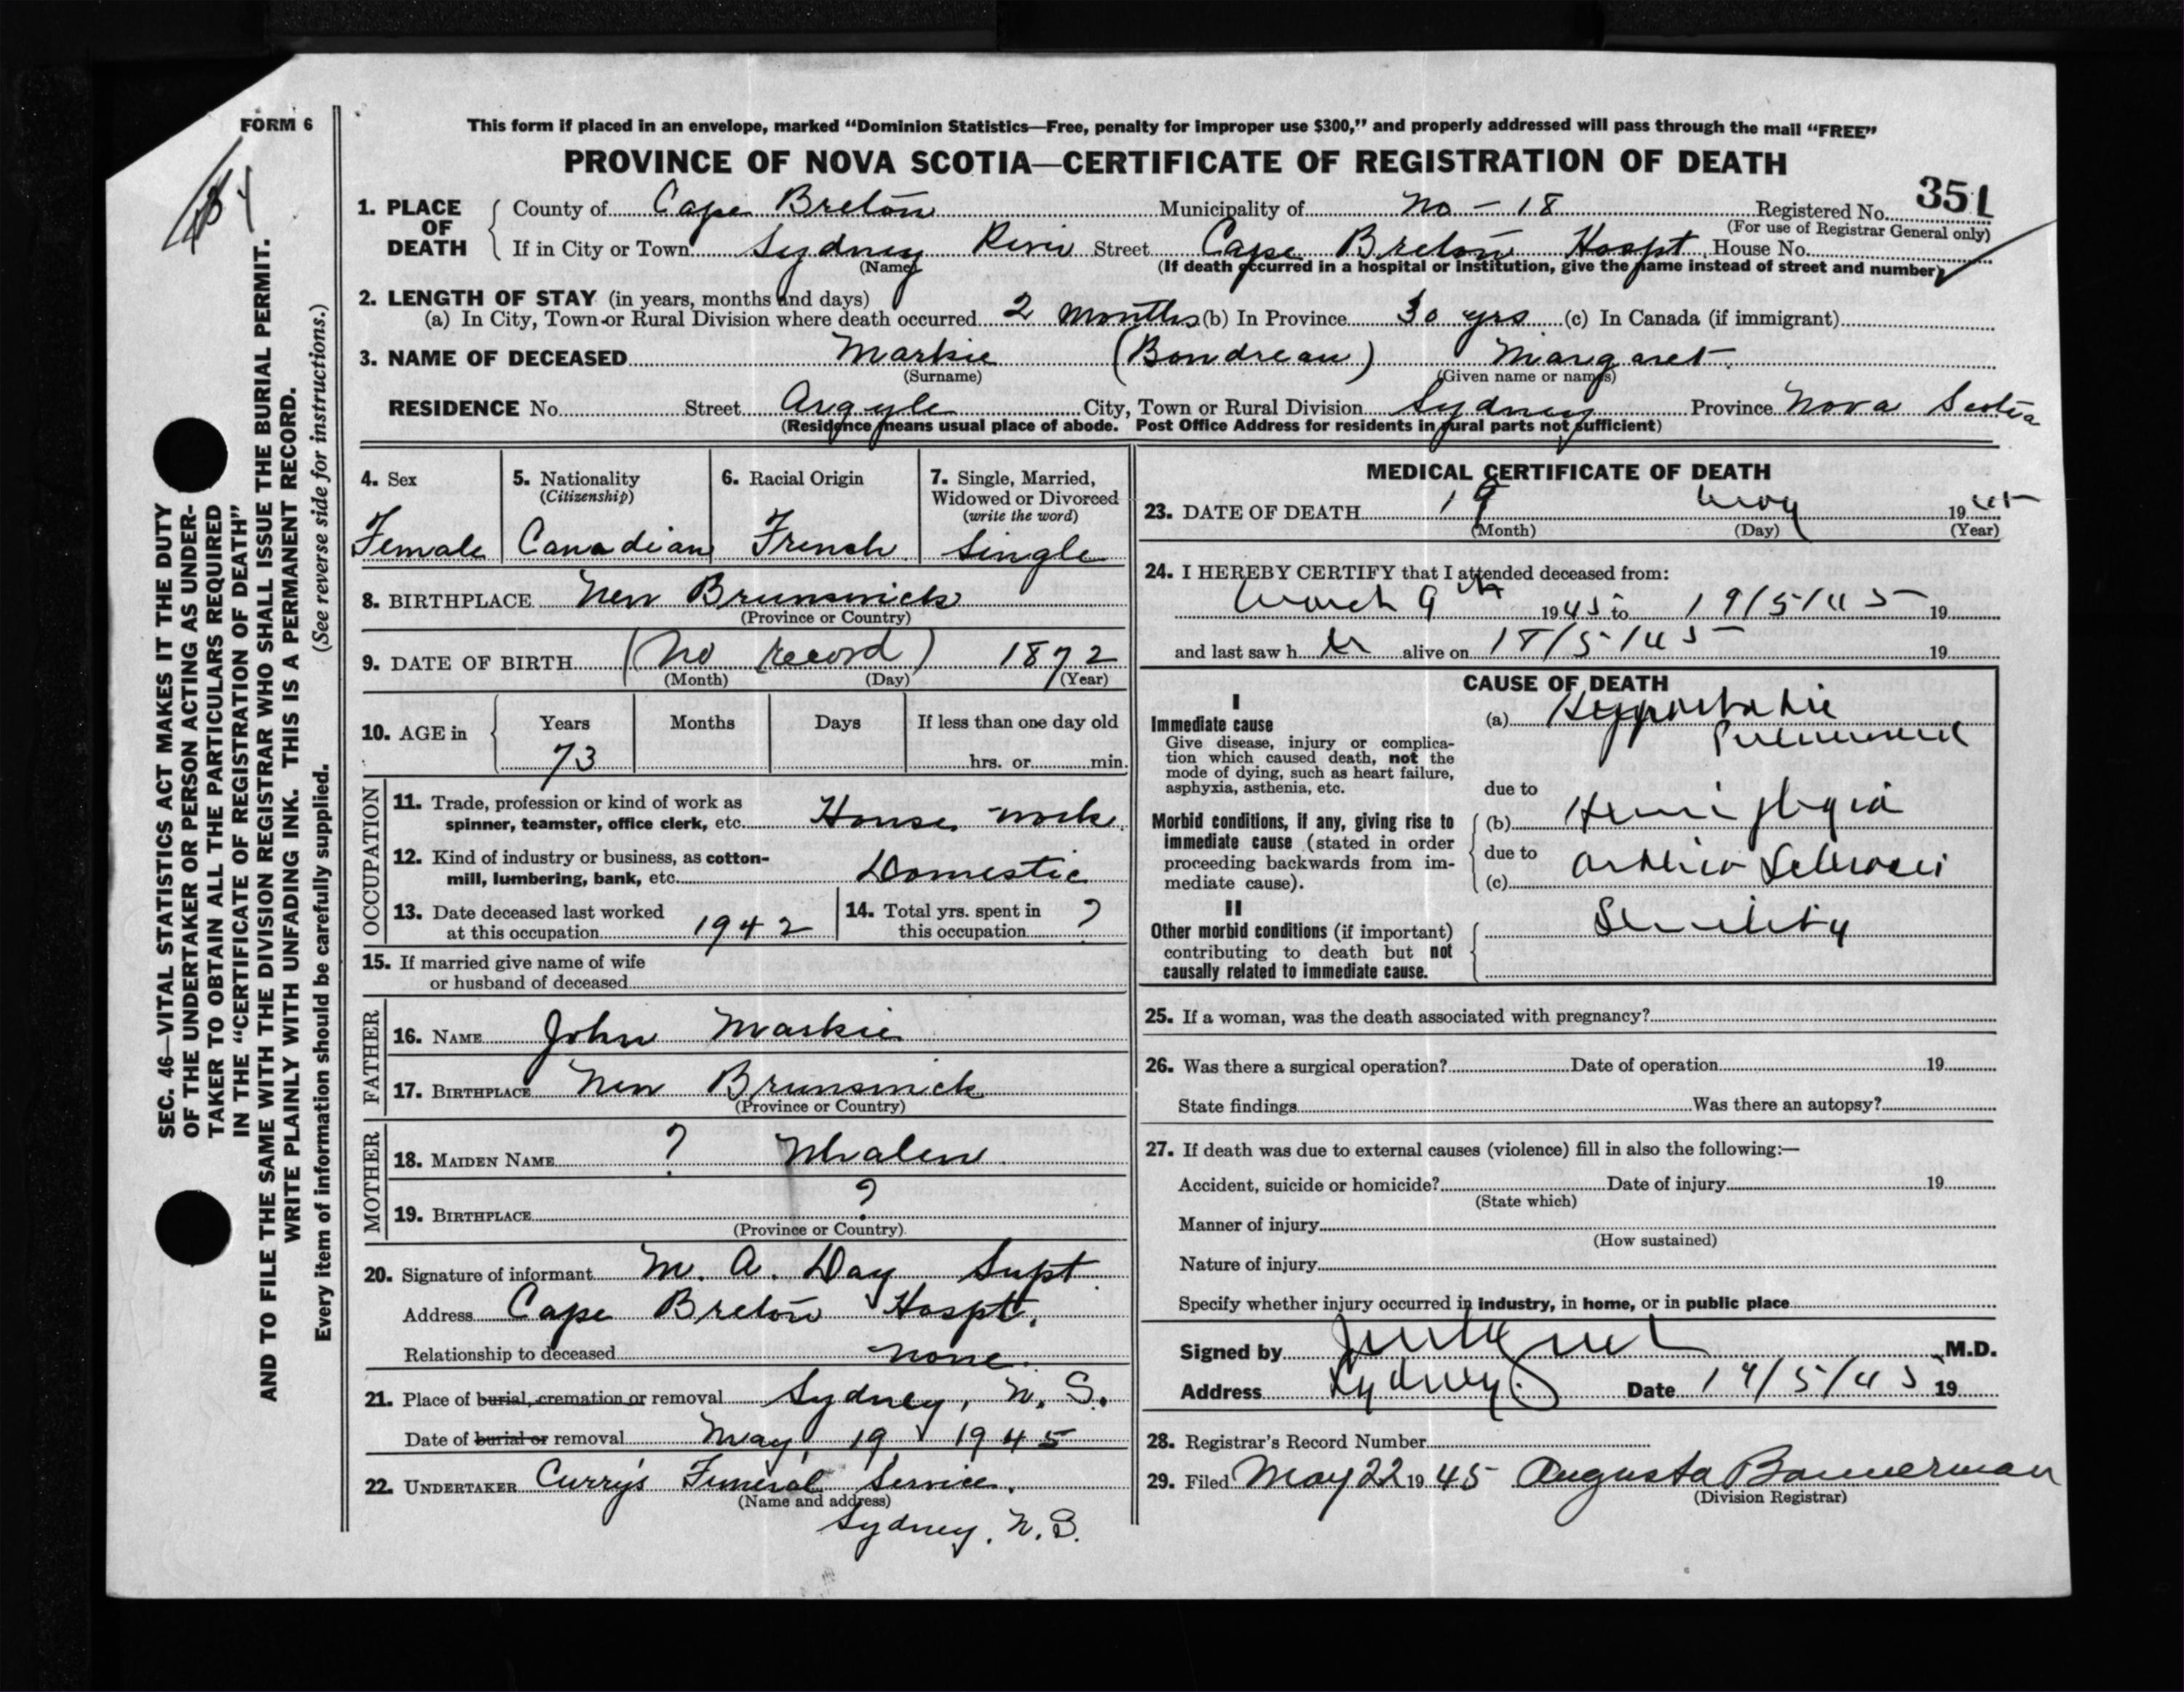 FORM 6
This form if placed in an envelope, marked "Dominion Statistics—Free, penalty for improper use $300," and properly addressed will pass through the mail "FREE"
PROVINCE OF NOVA SCOTIA—CERTIFICATE OF REGISTRATION OF DEATH
1. PLACE OF DEATH
County of Cape Breton Municipality of No - 18 Registered No. 351
(For use of Registrar General only)
If in City or Town Sydney River Street Cape Breton Hospt. House No.
(Name) (If death occurred in a hospital or institution, give the name instead of street and number)
2. LENGTH OF STAY (in years, months and days)
(a) In City, Town or Rural Division where death occurred 2 months (b) In Province 30 yrs. (c) In Canada (if immigrant)
3. NAME OF DECEASED Markie (Boudreau) Margaret
(Surname) (Given name or names)
RESIDENCE No. Street Argyle City, Town or Rural Division Sydney Province Nova Scotia
(Residence means usual place of abode. Post Office Address for residents in rural parts not sufficient)
4. Sex
Female
5. Nationality
(Citizenship)
Canadian
6. Racial Origin
French
7. Single, Married,
Widowed or Divorced
(write the word)
Single
8. BIRTHPLACE New Brunswick
(Province or Country)
9. DATE OF BIRTH (No record) 1872
(Month) (Day) (Year)
10. AGE in
Years Months Days If less than one day old
73 hrs. or min.
OCCUPATION
11. Trade, profession or kind of work as
spinner, teamster, office clerk, etc. House work
12. Kind of industry or business, as cotton-
mill, lumbering, bank, etc. Domestic
13. Date deceased last worked
at this occupation 1942
14. Total yrs. spent in
this occupation ?
15. If married give name of wife
or husband of deceased
FATHER
16. NAME John Markie
17. BIRTHPLACE New Brunswick
(Province or Country)
MOTHER
18. MAIDEN NAME ? Whalen
19. BIRTHPLACE ?
(Province or Country)
20. Signature of informant M. A. Day Supt
Address Cape Breton Hospt.
Relationship to deceased none.
21. Place of burial, cremation or removal Sydney, N. S.
Date of burial or removal May 19 1945
22. UNDERTAKER Curry's Funeral Service.
(Name and address)
Sydney, N. S.
MEDICAL CERTIFICATE OF DEATH
23. DATE OF DEATH 19 May 1945
(Month) (Day) (Year)
24. I HEREBY CERTIFY that I attended deceased from:
March 9th 1945 to 19/5/45 19
and last saw h er alive on 18/5/45 19
CAUSE OF DEATH
I
Immediate cause
Give disease, injury or complica-
tion which caused death, not the
mode of dying, such as heart failure,
asphyxia, asthenia, etc.
(a) Hypostatic
due to
Morbid conditions, if any, giving rise to
immediate cause (stated in order
proceeding backwards from im-
mediate cause).
(b) Hemiplegia
due to
(c)
II
Other morbid conditions (if important)
contributing to death but not
causally related to immediate cause.
Senility
25. If a woman, was the death associated with pregnancy?
26. Was there a surgical operation? Date of operation 19
State findings Was there an autopsy?
27. If death was due to external causes (violence) fill in also the following:—
Accident, suicide or homicide? Date of injury 19
(State which)
Manner of injury
(How sustained)
Nature of injury
Specify whether injury occurred in industry, in home, or in public place
Signed by M.D.
Address Sydney Date 19/5/45 19
28. Registrar's Record Number
29. Filed May 22 1945 Augusta Bannerman
(Division Registrar)
SEC. 46—VITAL STATISTICS ACT MAKES IT THE DUTY
OF THE UNDERTAKER OR PERSON ACTING AS UNDER-
TAKER TO OBTAIN ALL THE PARTICULARS REQUIRED
IN THE "CERTIFICATE OF REGISTRATION OF DEATH"
AND TO FILE THE SAME WITH THE DIVISION REGISTRAR WHO SHALL ISSUE THE BURIAL PERMIT.
WRITE PLAINLY WITH UNFADING INK. THIS IS A PERMANENT RECORD.
Every item of information should be carefully supplied. (See reverse side for instructions.)